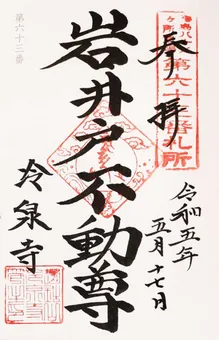 奉拝
第六十三番札所
岩井戸不動尊
令和五年
五月十七日
冷泉寺
第六十三番